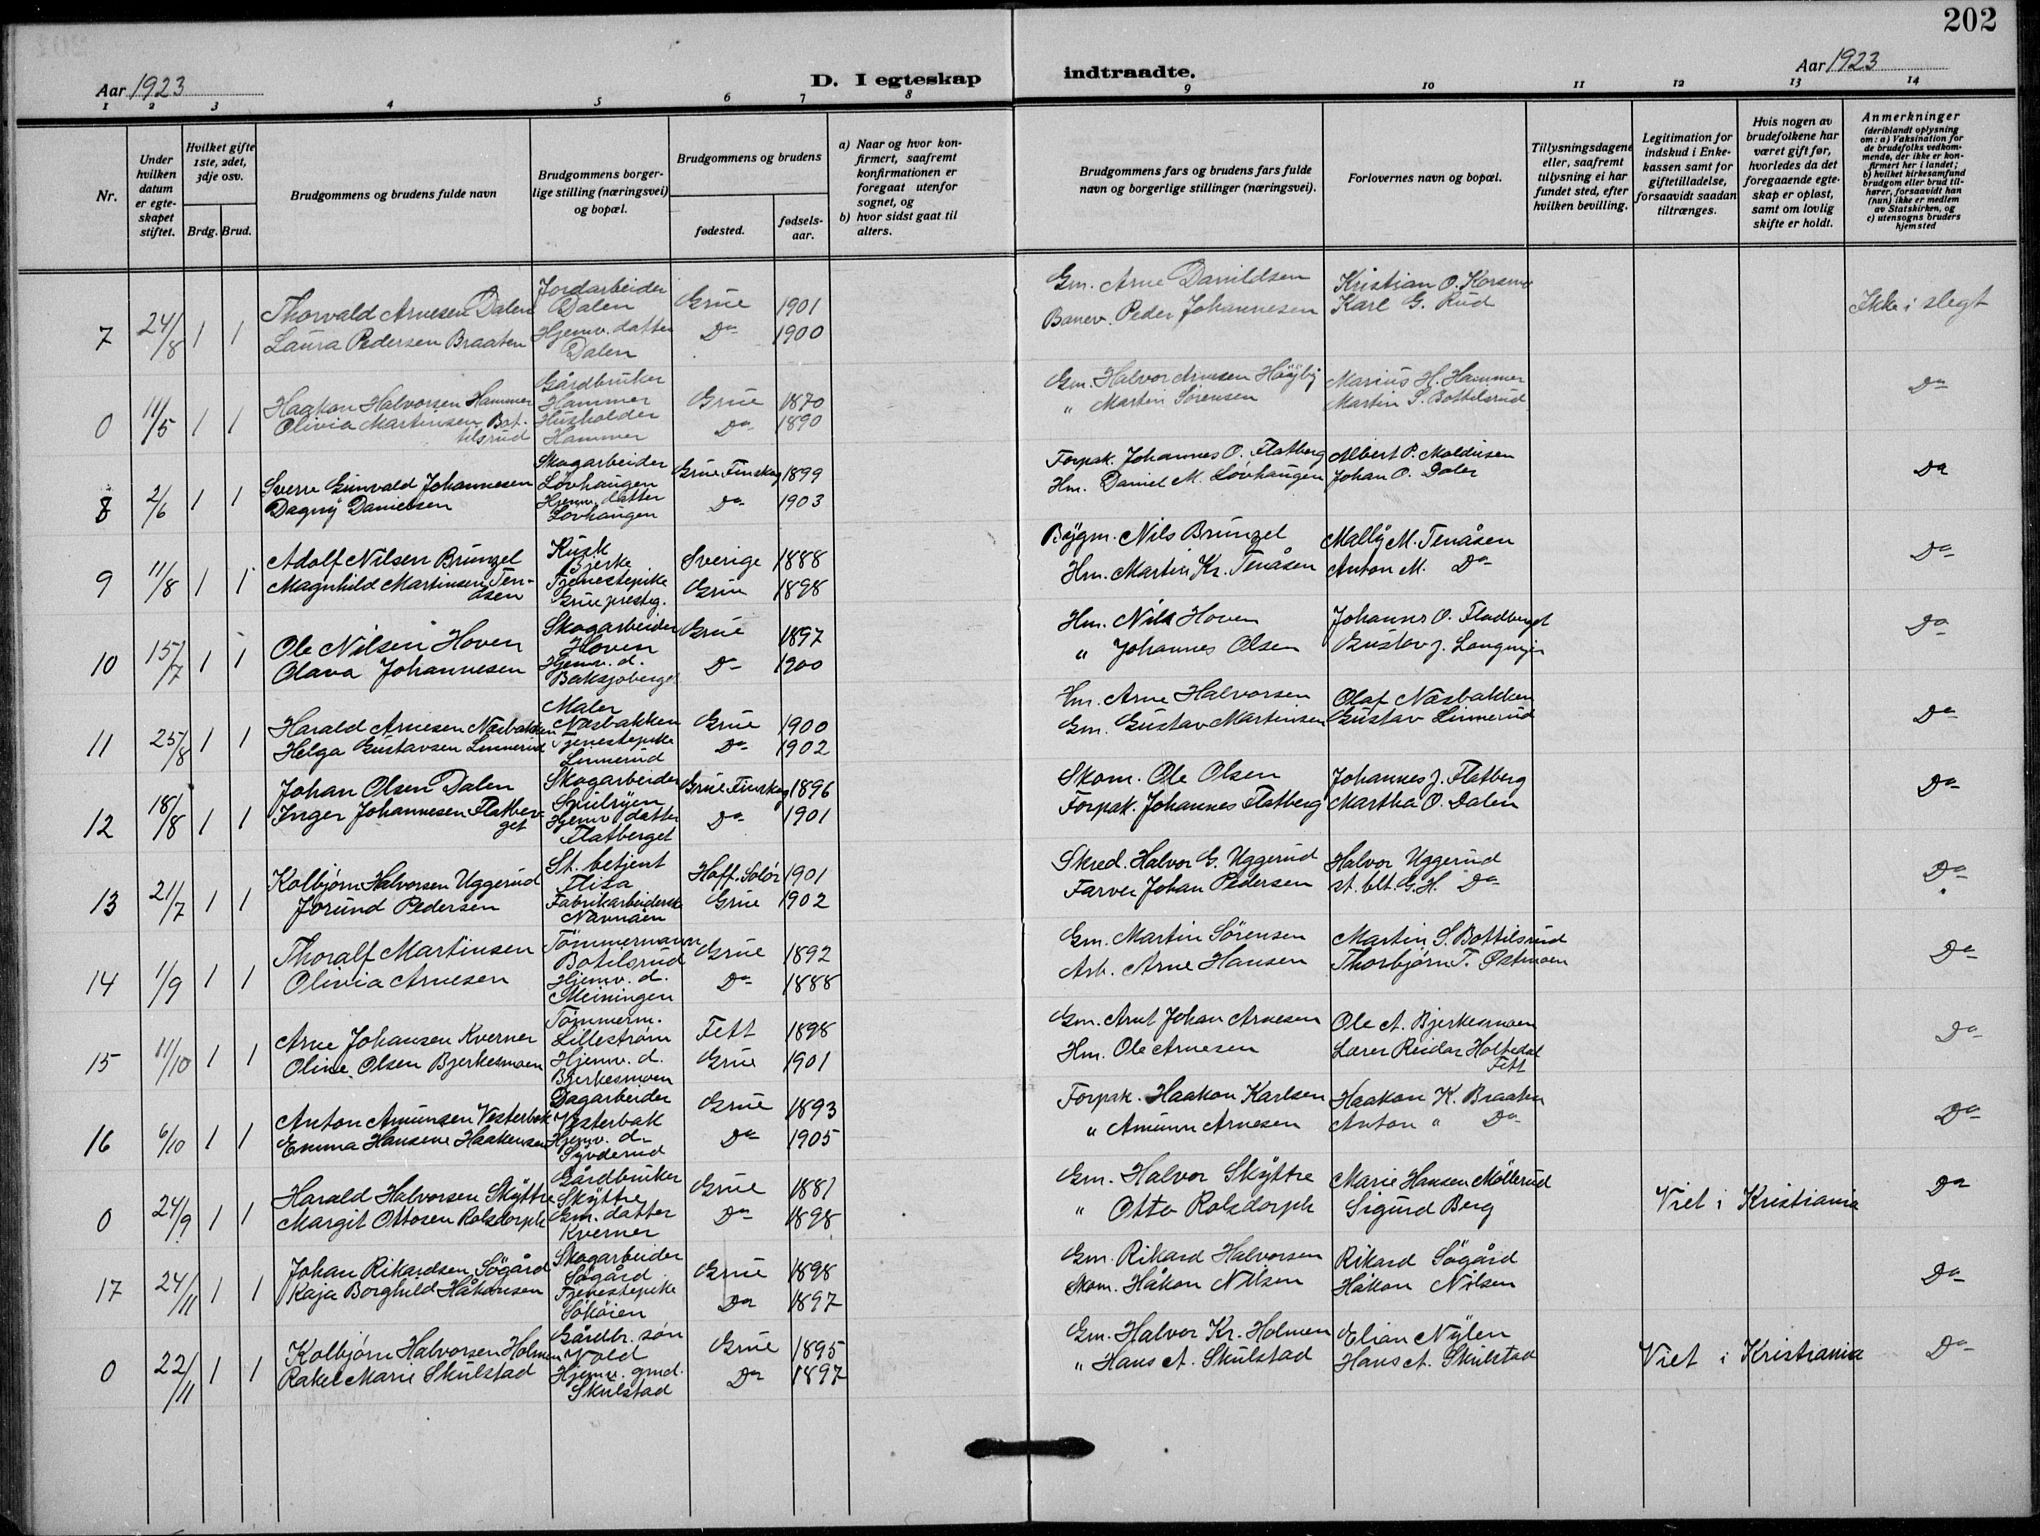 202
Aar 1923
D. I egteskap indtraadte.
Aar 1923
1 2 3 4 5 6 7 8 9 10 11 12 13 14
Nr.
Under hvilken datum er egteskapet stiftet.
Hvilket gifte 1ste, 2det, 3dje osv.
Brdg. Brud.
Brudgommens og brudens fulde navn
Brudgommens borgerlige stilling (næringsvei) og bopæl.
Brudgommens og brudens
fødested.
fødselsaar.
a) Naar og hvor konfirmert, saafremt konfirmationen er foregaat utenfor sognet, og
b) hvor sidst gaat til alters.
Brudgommens fars og brudens fars fulde navn og borgerlige stillinger (næringsvei).
Forlovernes navn og bopæl.
Tillysningsdagene eller, saafremt tillysning ei har fundet sted, efter hvilken bevilling.
Legitimation for indskud i Enkekassen samt for giftetilladelse, forsaavidt saadan tiltrænges.
Hvis nogen av brudefolkene har været gift før, hvorledes da det foregaaende egteskap er opløst, samt om lovlig skifte er holdt.
Anmerkninger
(deriblandt oplysning om: a) Vaksination for de brudefolks vedkommende, der ikke er konfirmert her i landet; b) hvilket kirkesamfund brudgom eller brud tilhører, forsaavidt han (hun) ikke er medlem av Statskirken, og c) utensogns bruders hjemsted
7 24/8 1 1 Thorvald Arnesen Dalen Jordarbeider Dalen Grue 1901 Gm. Arne Danildsen Kristian O. Korsmo Ikke i slegt
Laura Pedersen Braaten Hjemv. datter Dalen Do 1900 Banev. Peder Johannesen Karl G. Rud
0 11/5 1 1 Haakon Halvorsen Hammer Gårdbruker Hammer Grue 1870 Gm. Halvor Arnesen Håøjby Marius H. Hammer Do
Olivia Martinsen Bottilsrud Husholder Hammer Do 1890 " Martin Sørensen Martin S. Bottilsrud
8 2/6 1 1 Sverre Gunvald Johannesen Skogarbeider Løvhaugen Grue Finskog 1899 Forpak. Johannes O. Flatberg Albert P. Moldusen Do
Dagny Danielsen Hjemv. datter Løvhaugen Do 1903 Hm. Daniel M. Løvhaugen Johan O. Dalen
9 11/8 1 1 Adolf Nilsen Brunzel Kusk Bjerke Sverige 1888 Bygm. Nils Brunzel Mally M. Tenåsen Do
Magnhild Martinsen Tenåsen Tjenestepike Grue presteg. Grue 1898 Hm. Martin Kr. Tenåsen Anton M. Do
10 15/7 1 1 Ole Nilsen Hoven Skogarbeider Hoven Grue 1897 Hm. Nils Hoven Johannes O. Fladberget Do
Olava Johannesen Hjemv. d. Baksjøberget Do 1900 " Johannes Olsen Gustav J.
11 25/8 1 1 Harald Arnesen Næsbakken Maler Næsbakken Grue 1900 Hm. Arne Halvorsen Olaf Næsbakken Do
Helga Gustavsen Linnerud Tjenestepike Linnerud Do 1902 Gm. Gustav Martinsen Gustav Linnerud
12 18/8 1 1 Johan Olsen Dalen Skogarbeider Grue Finskog 1896 Skom. Ole Olsen Johannes J. Flatberg Do
Inger Johannesen Flatberget Hjemv. datter Flatberget Do 1901 Forpak. Johannes Flatberg Martha O. Dalen
13 21/7 1 1 Kolbjørn Halvorsen Uggerud St. betjent Flisa Hoff. Solør 1901 Skred. Halvor G. Uggerud Halvor Uggerud Do
Jorund Pedersen Fabrikarbeiderske Navnåen Grue 1902 Farver Johan Pedersen st. btt. G. H. Do
14 1/9 1 1 Thoralf Martinsen Tømmermann Botilsrud Grue 1892 Gm. Martin Sørensen Martin S. Bottilsrud Do
Olivia Arnesen Hjemv. d. Meiningen Do 1888 Arb. Arne Hansen Thorbjørn T. Østmoen
15 11/10 1 1 Arne Johansen Kverner Tømmerm. Lillestrøm Fett 1898 Gm. Arnt Johan Arnesen Ole A. Bjerkesmoen Do
Oline Olsen Bjerkesmoen Hjemv. d. Bjerkesmoen Grue 1901 Hm. Ole Arnesen Lærer Reidar Holtedal Fett
16 6/10 1 1 Anton Amundsen Vesterbak Dagarbeider Vesterbak Grue 1893 Forpak. Haakon Karlsen Haakon K. Braaten Do
Emma Hansine Haakensen Hjemv. d. Do 1905 " Amunn Arnesen Anton " Do
0 24/9 1 1 Harald Halvorsen Skyttre Gårdbruker Skyttre Grue 1881 Gm. Halvor Skyttre Marie Hansen Møllerud Viet i Kristiania Do
Margit Ottosen Rolsdorph Gm. datter Kverner Do 1898 " Otto Rolsdorph Sigurd Berg
17 24/11 1 1 Johan Rikardsen Søgård Skogarbeider Søgård Grue 1898 Gm. Rikard Halvorsen Rikard Søgård Do
Kaja Borghild Håkonsen Tjenestepike Do 1897 Skom. Håkon Nilsen Håkon Nilsen
0 22/11 1 1 Kolbjørn Halvorsen Holmen Gårdbr. søn Vold Grue 1895 Gm. Halvor Kr. Holmen Elian Nylen Viet i Kristiania Do
Rakel Marie Skulstad Hjemv. gmd. Skulstad Do 1897 " Hans A. Skulstad Hans A. Skulstad